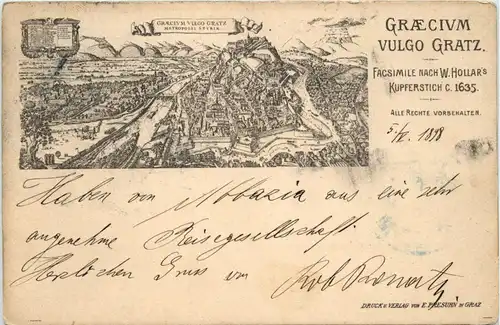 GRÆCIVM VULGO GRATZ
METROPOLIS STYRIÆ.
GRÆCIVM
VULGO GRATZ.
FACSIMILE NACH W. HOLLAR'S
KUPFERSTICH C. 1635.
ALLE RECHTE VORBEHALTEN.
1898
Haben von Abbazia aus eine sehr
angenehme Reisegesellschaft.
Herzlichen Gruss von Rob
DRUCK U. VERLAG VON E. PRESUHN IN GRAZ